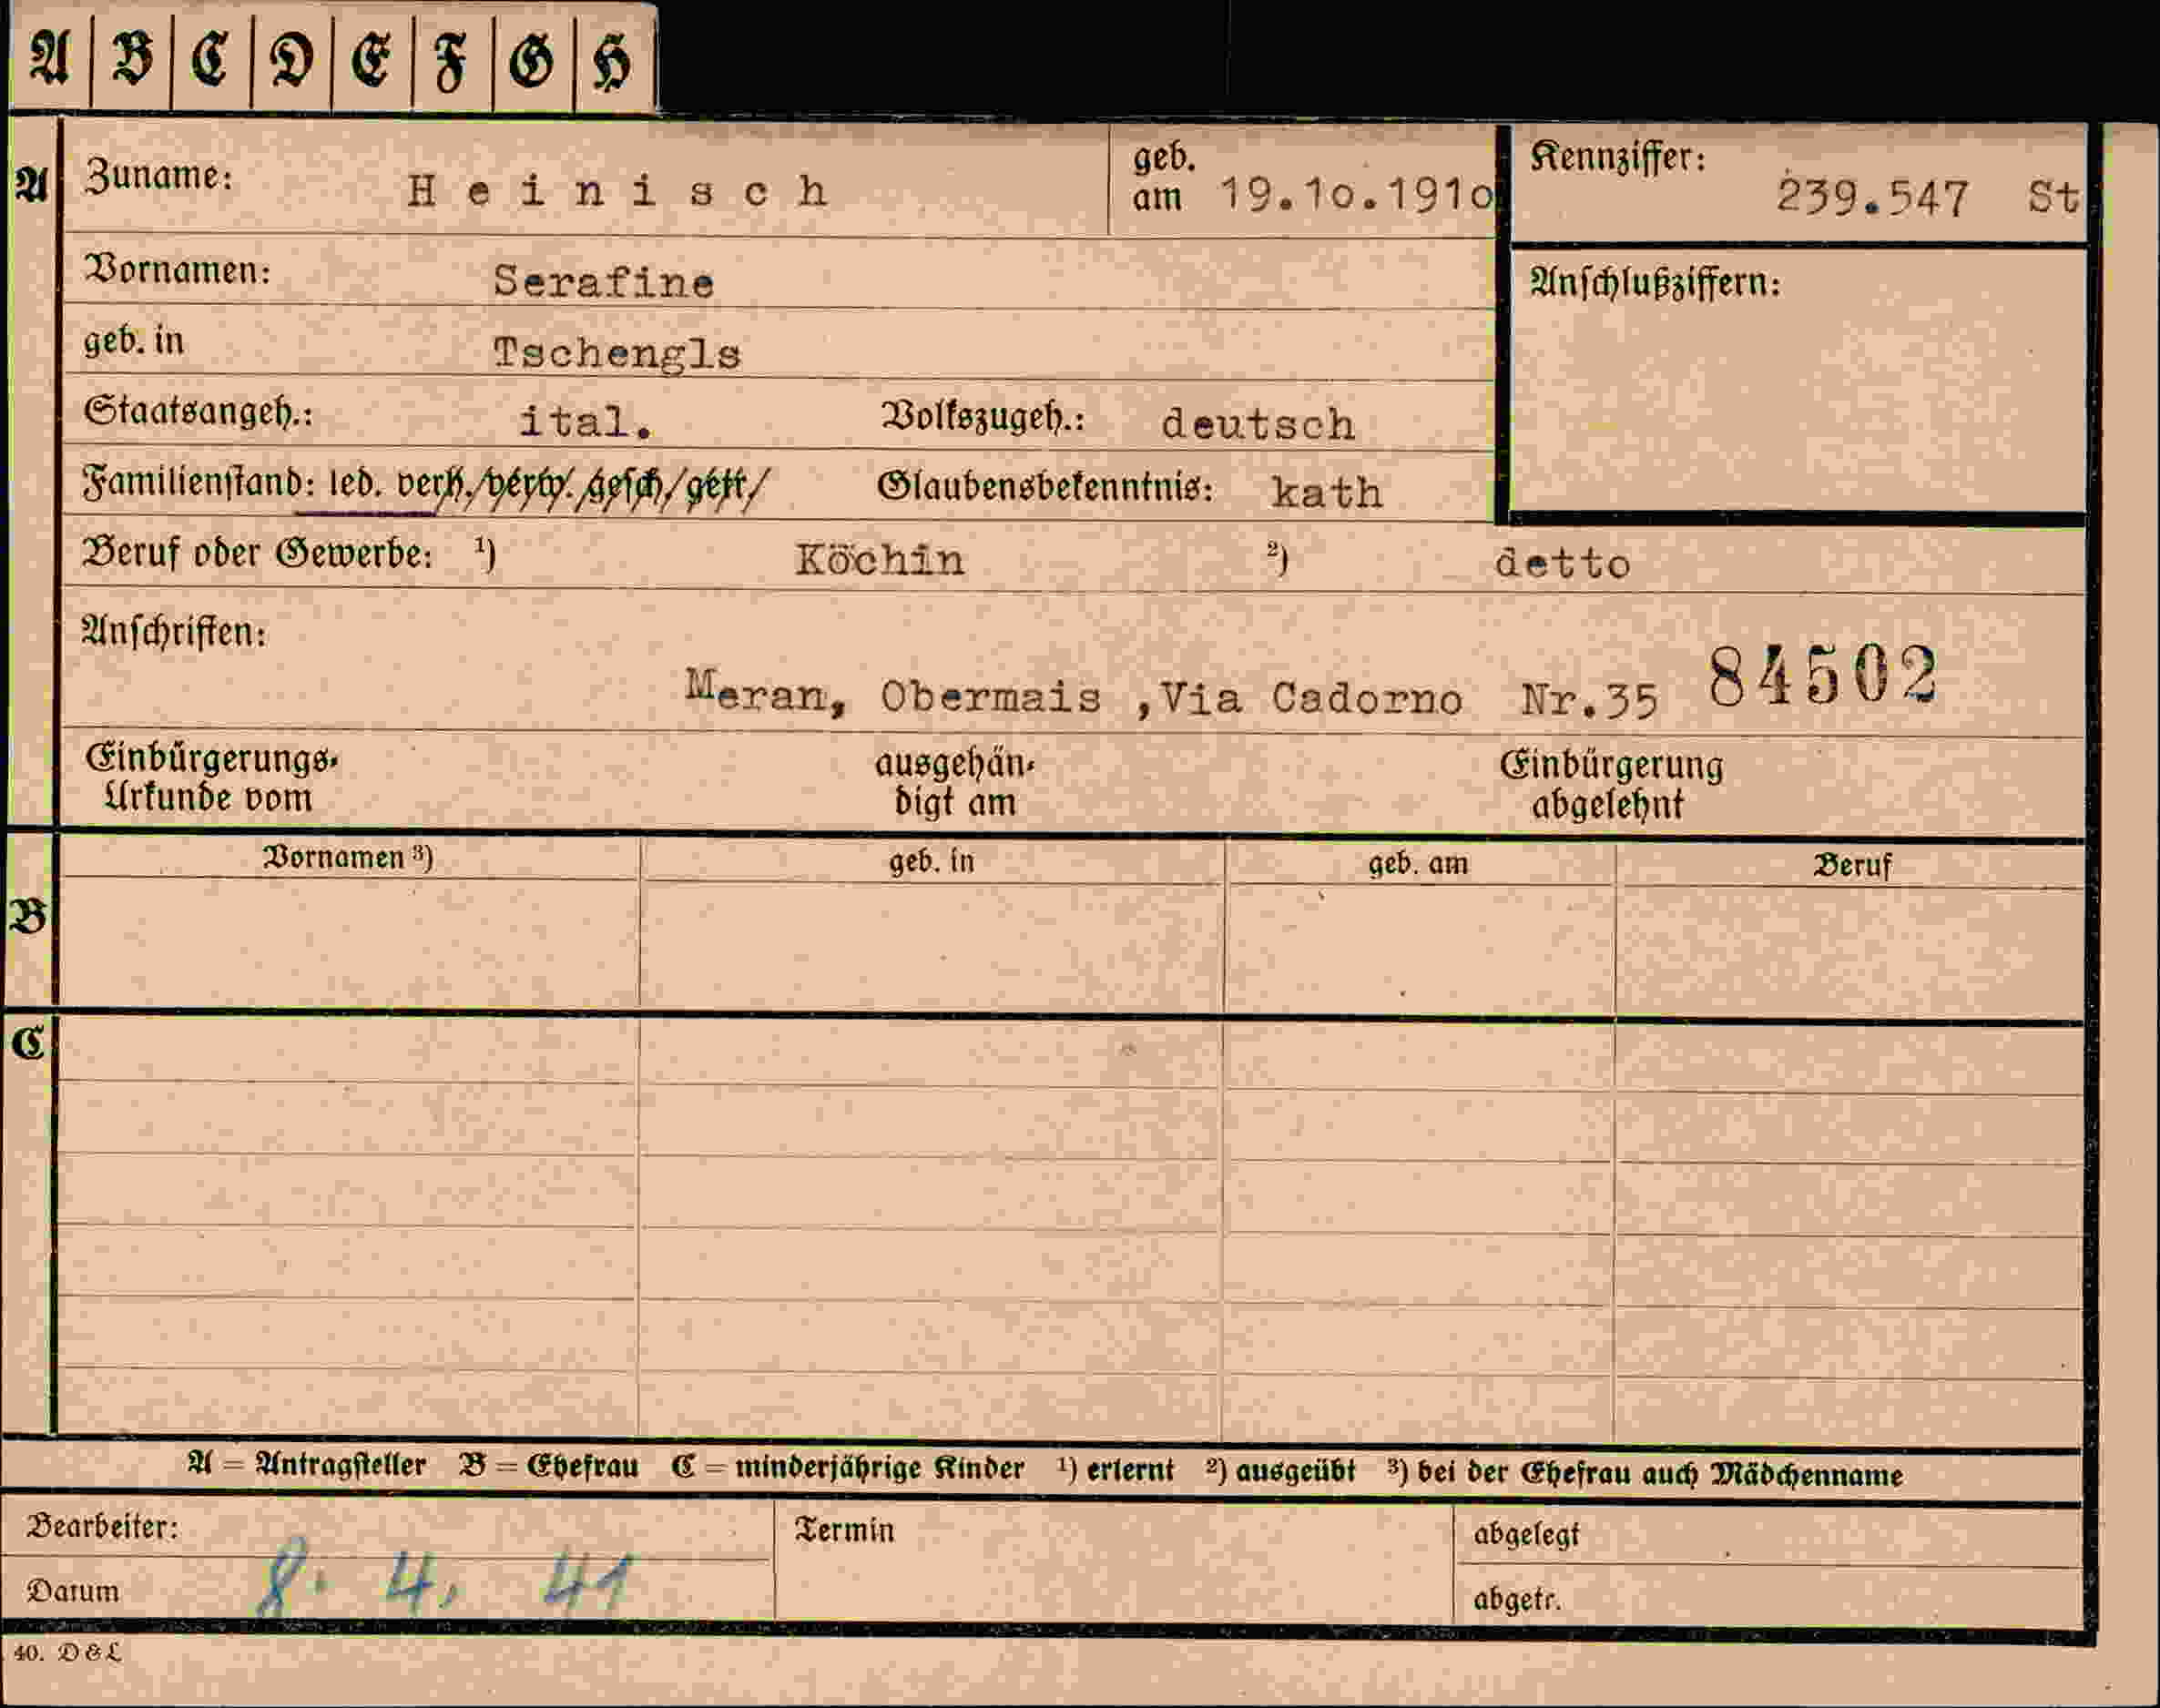 A B C D E F G H
A Zuname: Heinisch geb. am 19.10.1910 Kennziffer: 239.547 St
Vornamen: Serafine Anschlußziffern:
geb. in Tschengls
Staatsangeh.: ital. Volkszugeh.: deutsch
Familienstand: led. verh./verw./gesch/getr/ Glaubensbekenntnis: kath
Beruf oder Gewerbe: ¹) Köchin ²) detto
Anschriften:
Meran, Obermais ,Via Cadorno Nr.35 84502
Einbürgerungs- ausgehän- Einbürgerung
Urkunde vom digt am abgelehnt
B Vornamen ³) geb. in geb. am Beruf
C
A = Antragsteller B = Ehefrau C = minderjährige Kinder ¹) erlernt ²) ausgeübt ³) bei der Ehefrau auch Mädchenname
Bearbeiter: Termin abgelegt
Datum 8. 4. 41 abgetr.
40. D & L